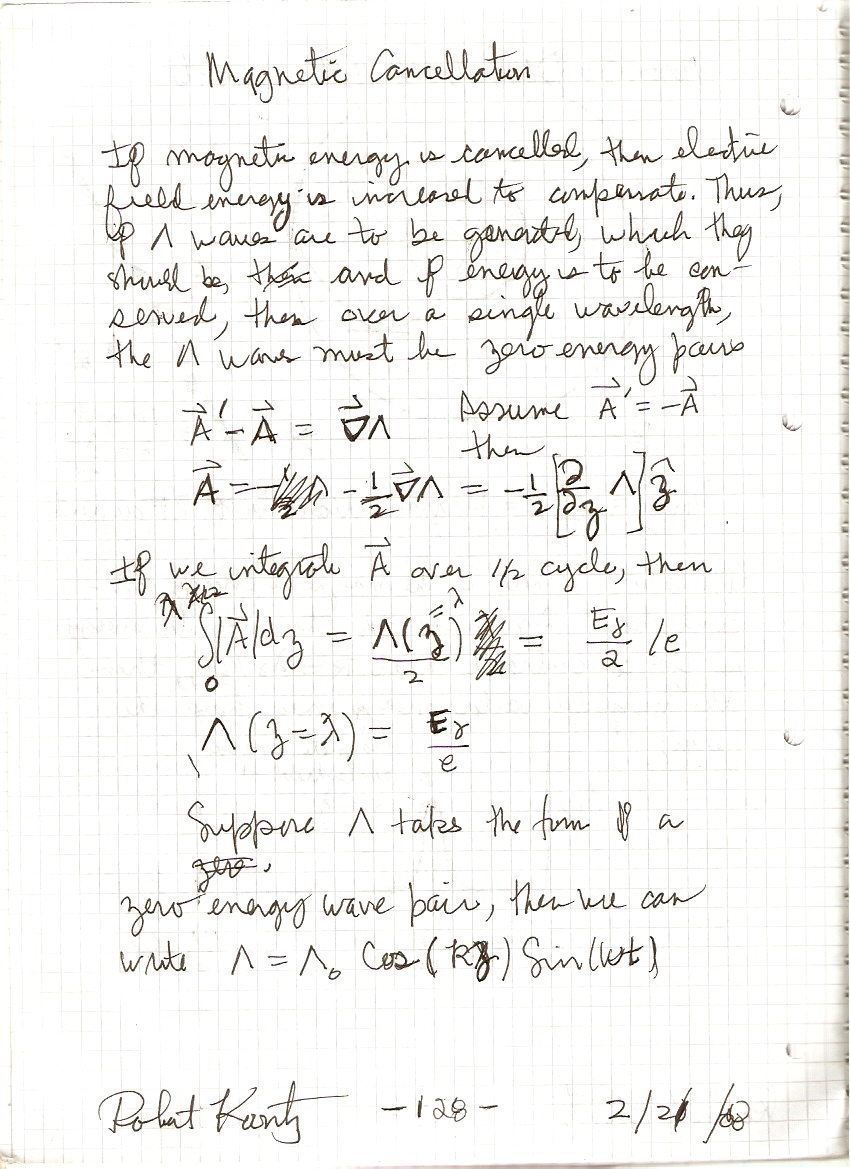 Magnetic Cancellation
If magnetic energy is cancelled, then electric
field energy is increased to compensate. Thus,
if Λ waves are to be generated, which they
should be, and if energy is to be con-
served, then over a single wavelength,
the Λ waves must be zero energy pairs
A⃗' - A⃗ = ∇⃗Λ Assume A⃗' = -A⃗
then
A⃗ = - 1/2 ∇⃗Λ = - 1/2 [∂/∂z Λ] ẑ
If we integrate A⃗ over 1/2 cycle, then
∫₀^λ |A⃗|dz = Λ(z=λ)/2 = Eγ/2 /e
Λ(z=λ) = Eγ/e
Suppose Λ takes the form of a
zero,
zero energy wave pair, then we can
write Λ = Λ₀ Cos(kz) Sin(ωt)
-128- 2/21/08